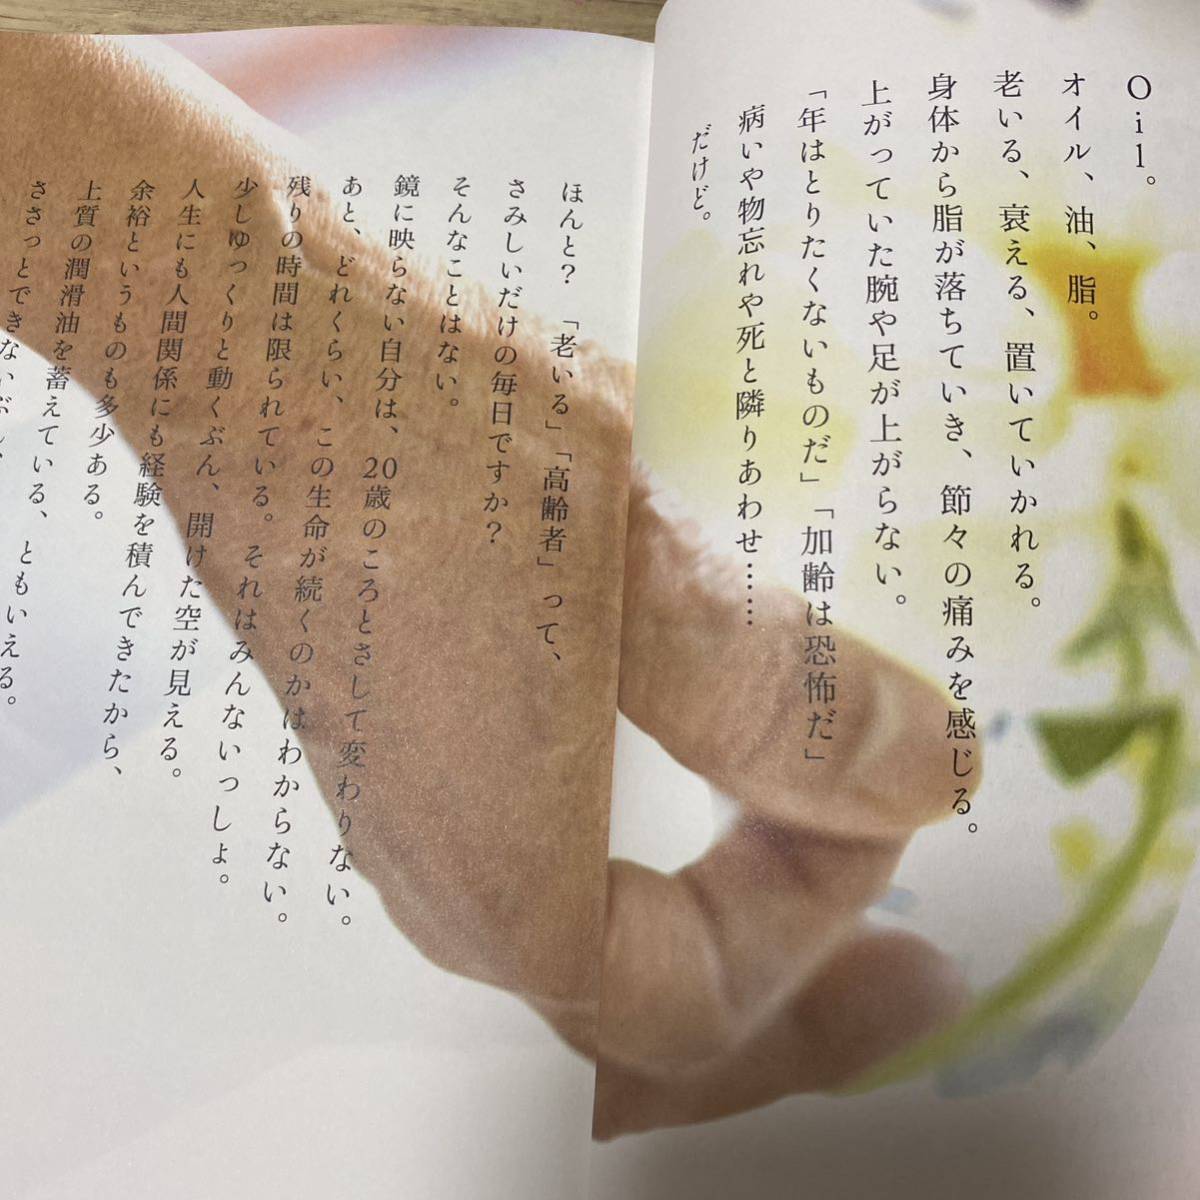 Oil。
オイル、油、脂。
老いる、衰える、置いていかれる。
身体から脂が落ちていき、節々の痛みを感じる。
上がっていた腕や足が上がらない。
「年はとりたくないものだ」「加齢は恐怖だ」
病いや物忘れや死と隣りあわせ……
だけど。
ほんと？ 「老いる」「高齢者」って、
さみしいだけの毎日ですか？
そんなことはない。
鏡に映らない自分は、20歳のころとさして変わりない。
あと、どれくらい、この生命が続くのかはわからない。
残りの時間は限られている。それはみんないっしょ。
少しゆっくりと動くぶん、開けた空が見える。
人生にも人間関係にも経験を積んできたから、
余裕というものも多少ある。
上質の潤滑油を蓄えている、ともいえる。
ささっとできないぶん、